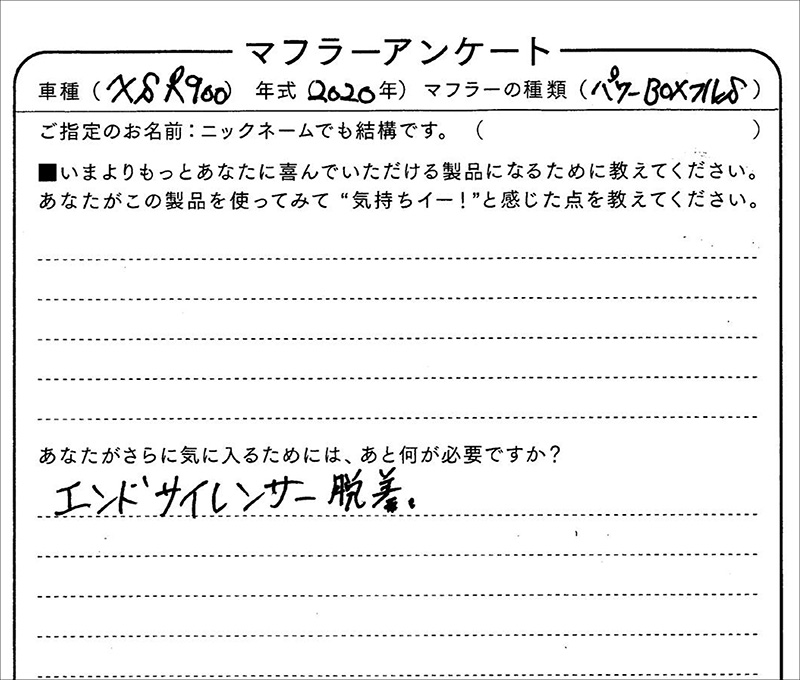 マフラーアンケート
車種（XSR900）年式（2020年）マフラーの種類（パワーBOXフルS）
ご指定のお名前：ニックネームでも結構です。（　　　）
■いまよりもっとあなたに喜んでいただける製品になるために教えてください。
あなたがこの製品を使ってみて“気持ちイー！”と感じた点を教えてください。
あなたがさらに気に入るためには、あと何が必要ですか？
エンドサイレンサー脱着。